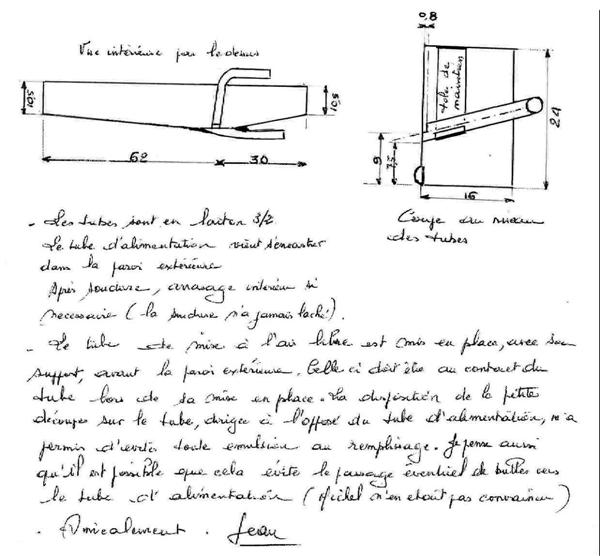 Vue intérieure par le dessus
10,5
10,5
62
30
0,8
tôle de
maintien
24
9
7,5
16
Coupe au niveau
des tubes
- Les tubes sont en laiton 3/2
Le tube d'alimentation vient s'encastrer
dans la paroi extérieure
Après soudure, arasage intérieur si
necessaire (la soudure n'a jamais laché).
- Le tube de mise à l'air libre est mis en place, avec son
support, avant la paroi extérieure. Celle ci doit être au contact du
tube lors de sa mise en place. La disposition de la petite
découpe sur le tube, dirigée à l'opposé du tube d'alimentation, m'a
permis d'éviter toute emulsion au remplissage. Je pense aussi
qu'il est possible que cela évite le passage éventuel de bulles vers
le tube d'alimentation (Michel n'en etait pas convaincu)
. Amicalement . Jean